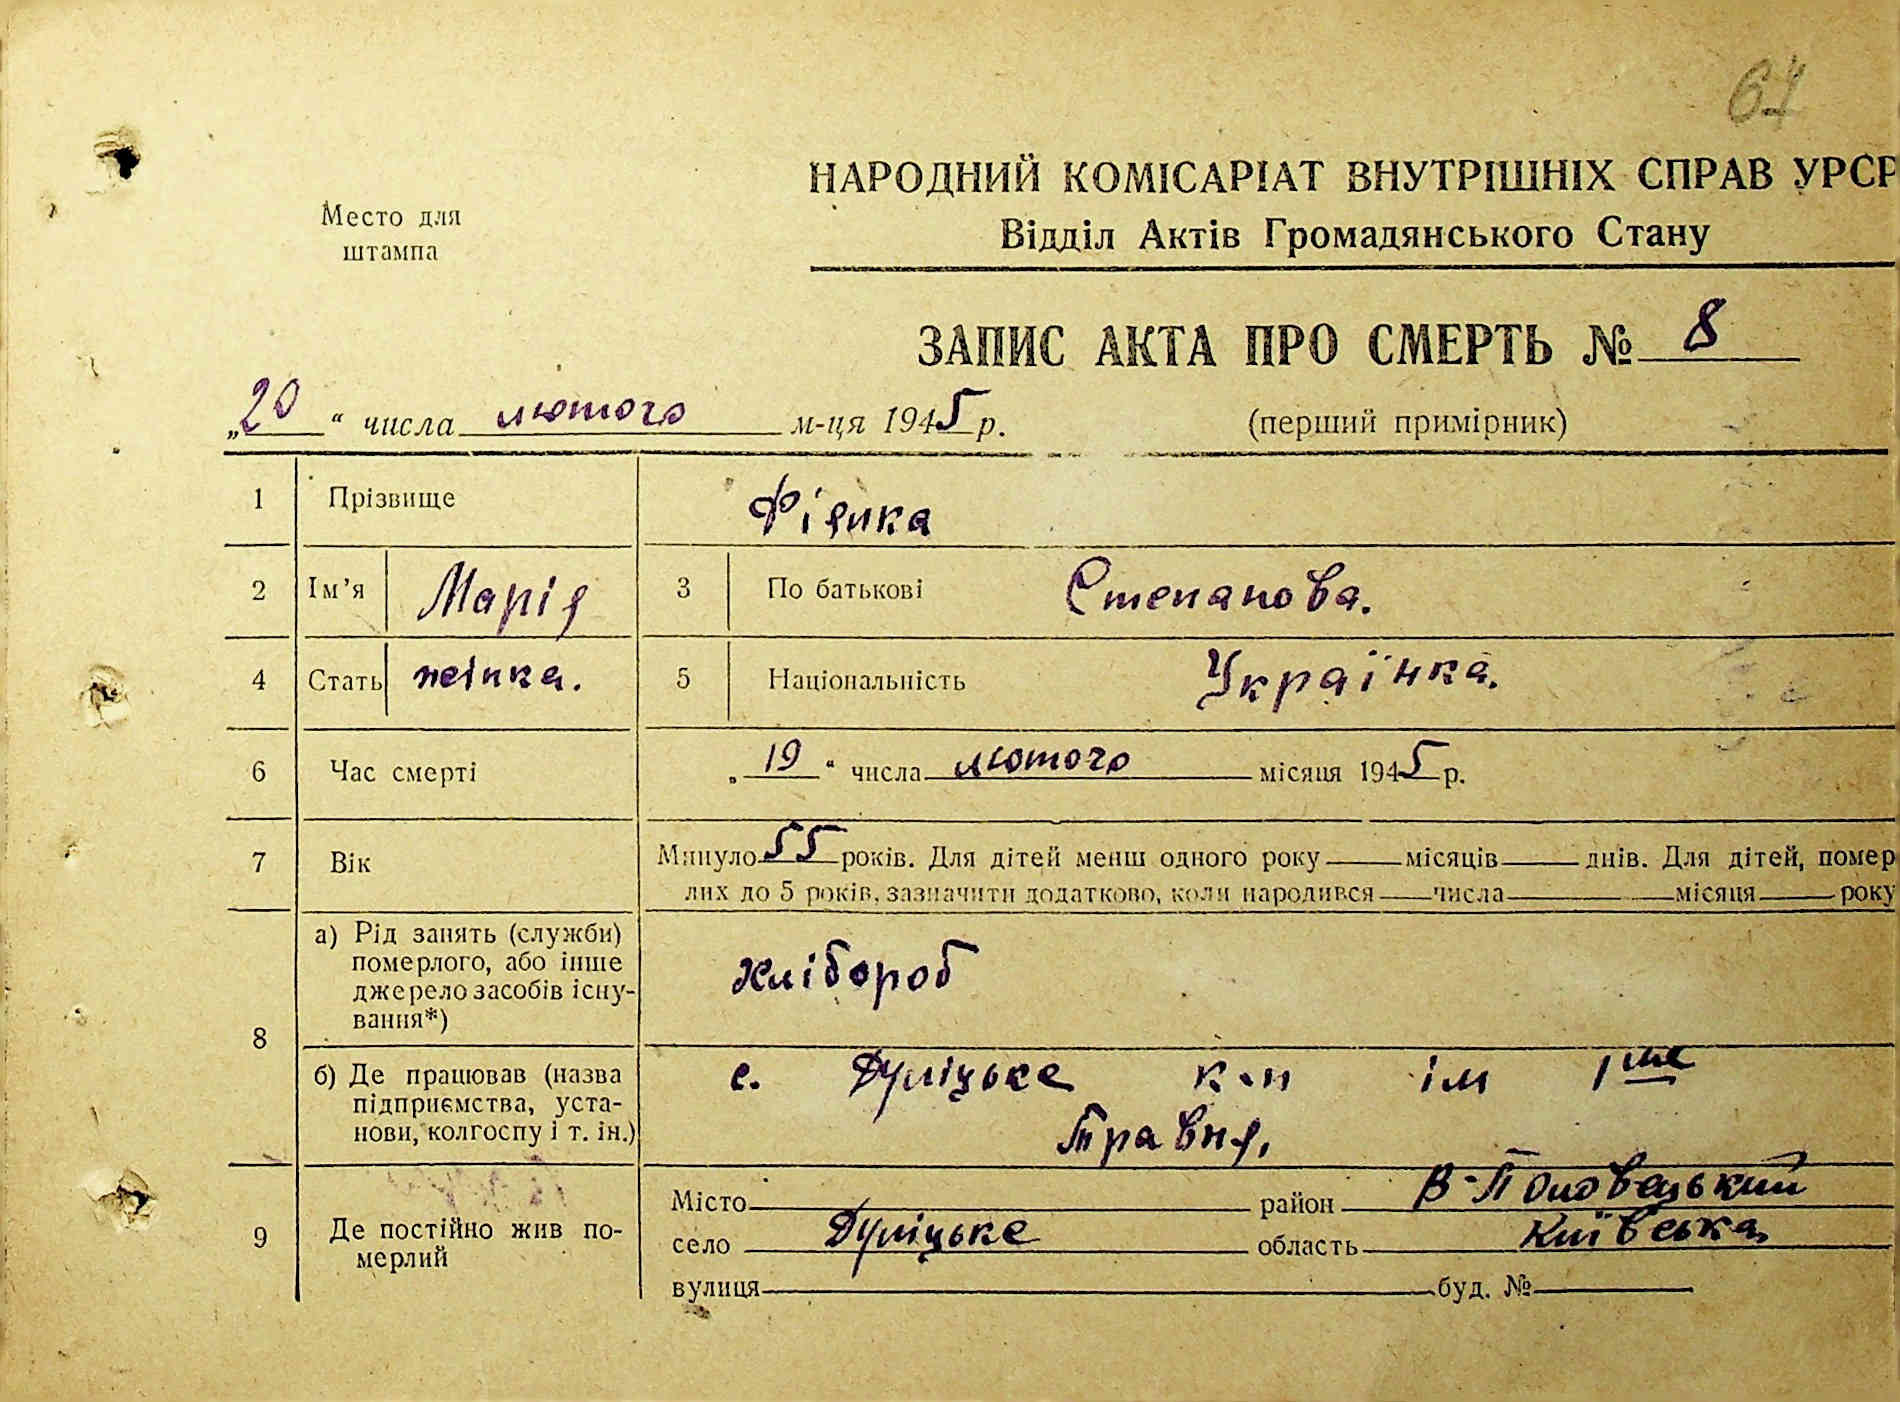 61
НАРОДНИЙ КОМІСАРІАТ ВНУТРІШНІХ СПРАВ УРСР
Место для
штампа
Відділ Актів Громадянського Стану
ЗАПИС АКТА ПРО СМЕРТЬ № 8
„20“ числа лютого м-ця 1945 р.
(перший примірник)
1 Прізвище
2 Ім’я Марія 3 По батькові Степанова.
4 Стать жінка. 5 Національність Українка.
6 Час смерті „19“ числа лютого місяця 1945 р.
7 Вік Минуло 55 років. Для дітей менш одного року місяців днів. Для дітей, помер
лих до 5 років, зазначити додатково, коли народився числа місяця року
8 а) Рід занять (служби)
померлого, або інше
джерело засобів існу-
вання*)
хлібороб
б) Де працював (назва
підприємства, уста-
нови, колгоспу і т. ін.)
с. Дуліцьке к-п ім 1ше
Травня,
9 Де постійно жив по-
мерлий
Місто район В-Половецький
село Дуліцьке область Київська
вулиця буд. №